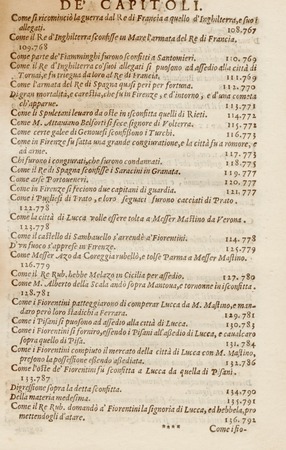 DE' CAPITOLI.
Come si ricominciò la guerra dal Re di Francia a quello d'Inghilterra, e suoi
allegati. 108.767
Come il Re d'Inghilterra sconfisse in Mare l'armata del Re di Francia.
109.768
Come parte de' Fiamminghi furono sconfitti a Santomieri. 110.769
Come il Re d'Inghilterra co' suoi allegati si puosono ad assedio alla città di
Tornai, e fu triegua da loro al Re di Francia. 111.769
Come l'armata del Re di Spagna quasi perì per fortuna. 112.770
Di gran mortalità, e carestia, che fu in Firenze, e d'intorno, e d'una cometa
ch'apparue. 113.771
Come li Spuletani leuaro da oste in isconfitta quelli di Rieti. 114.772
Come M. Attauiano Belforti si fece signore di Volterra. 115.772
Come certe galee di Genouesi sconfissono i Turchi. 116.773
Come in Firenze fu fatta una grande congiuratione, e la città fu a romore, e
ad arme. 117.773
Chi furono i congiurati, che furono condannati. 118.775
Come il Re di Spagna sconfisse i Saracini in Granata. 119.777
Come arse Portouenerì. 120.777
Come in Firenze si feciono due capitani di guardia. 121.777
Come i Pugliesi di Prato, e loro seguaci furono cacciati di Prato.
122.778
Come la città di Lucca volle essere tolta a Messer Mastino da Verona.
123.778
Come il castello di Sambauello s'arrendè a' Fiorentini. 124.778
D'un fuoco s'apprese in Firenze. 125.779
Come Messer Azo da Coreggia rubellò, e tolse Parma a Messer Mastino.
126.779
Come il Re Rub. hebbe Melazo in Cicilia per assedio. 127.780
Come M. Alberto della Scala andò sopra Mantoua, e tornonne in isconfitta.
128.781
Come i Fiorentini patteggiarono di comperar Lucca da M. Mastino, e mandaro
però loro stadichi a Ferrara. 129.781
Come i Pisani si puosono ad assedio alla città di Lucca. 130.781
Come i Fiorentini si fornirono, essendo i Pisani all'assedio di Lucca, e caualcaro
sopra quello di Pisa. 131.784
Come i Fiorentini compiuto il mercato della città di Lucca con M. Mastino,
presono la possessione essendo assediata. 132.786
Come l'oste de' Fiorentini fu sconfitta a Lucca da quella di Pisani.
133.787
Digressione sopra la detta sconfitta. 134.790
Della materia medesima. 135.791
Come il Re Rub. domandò a' Fiorentini la signoria di Lucca, ed hebbela, promettendogli
d'atare. 136.792
**** Come i fio-